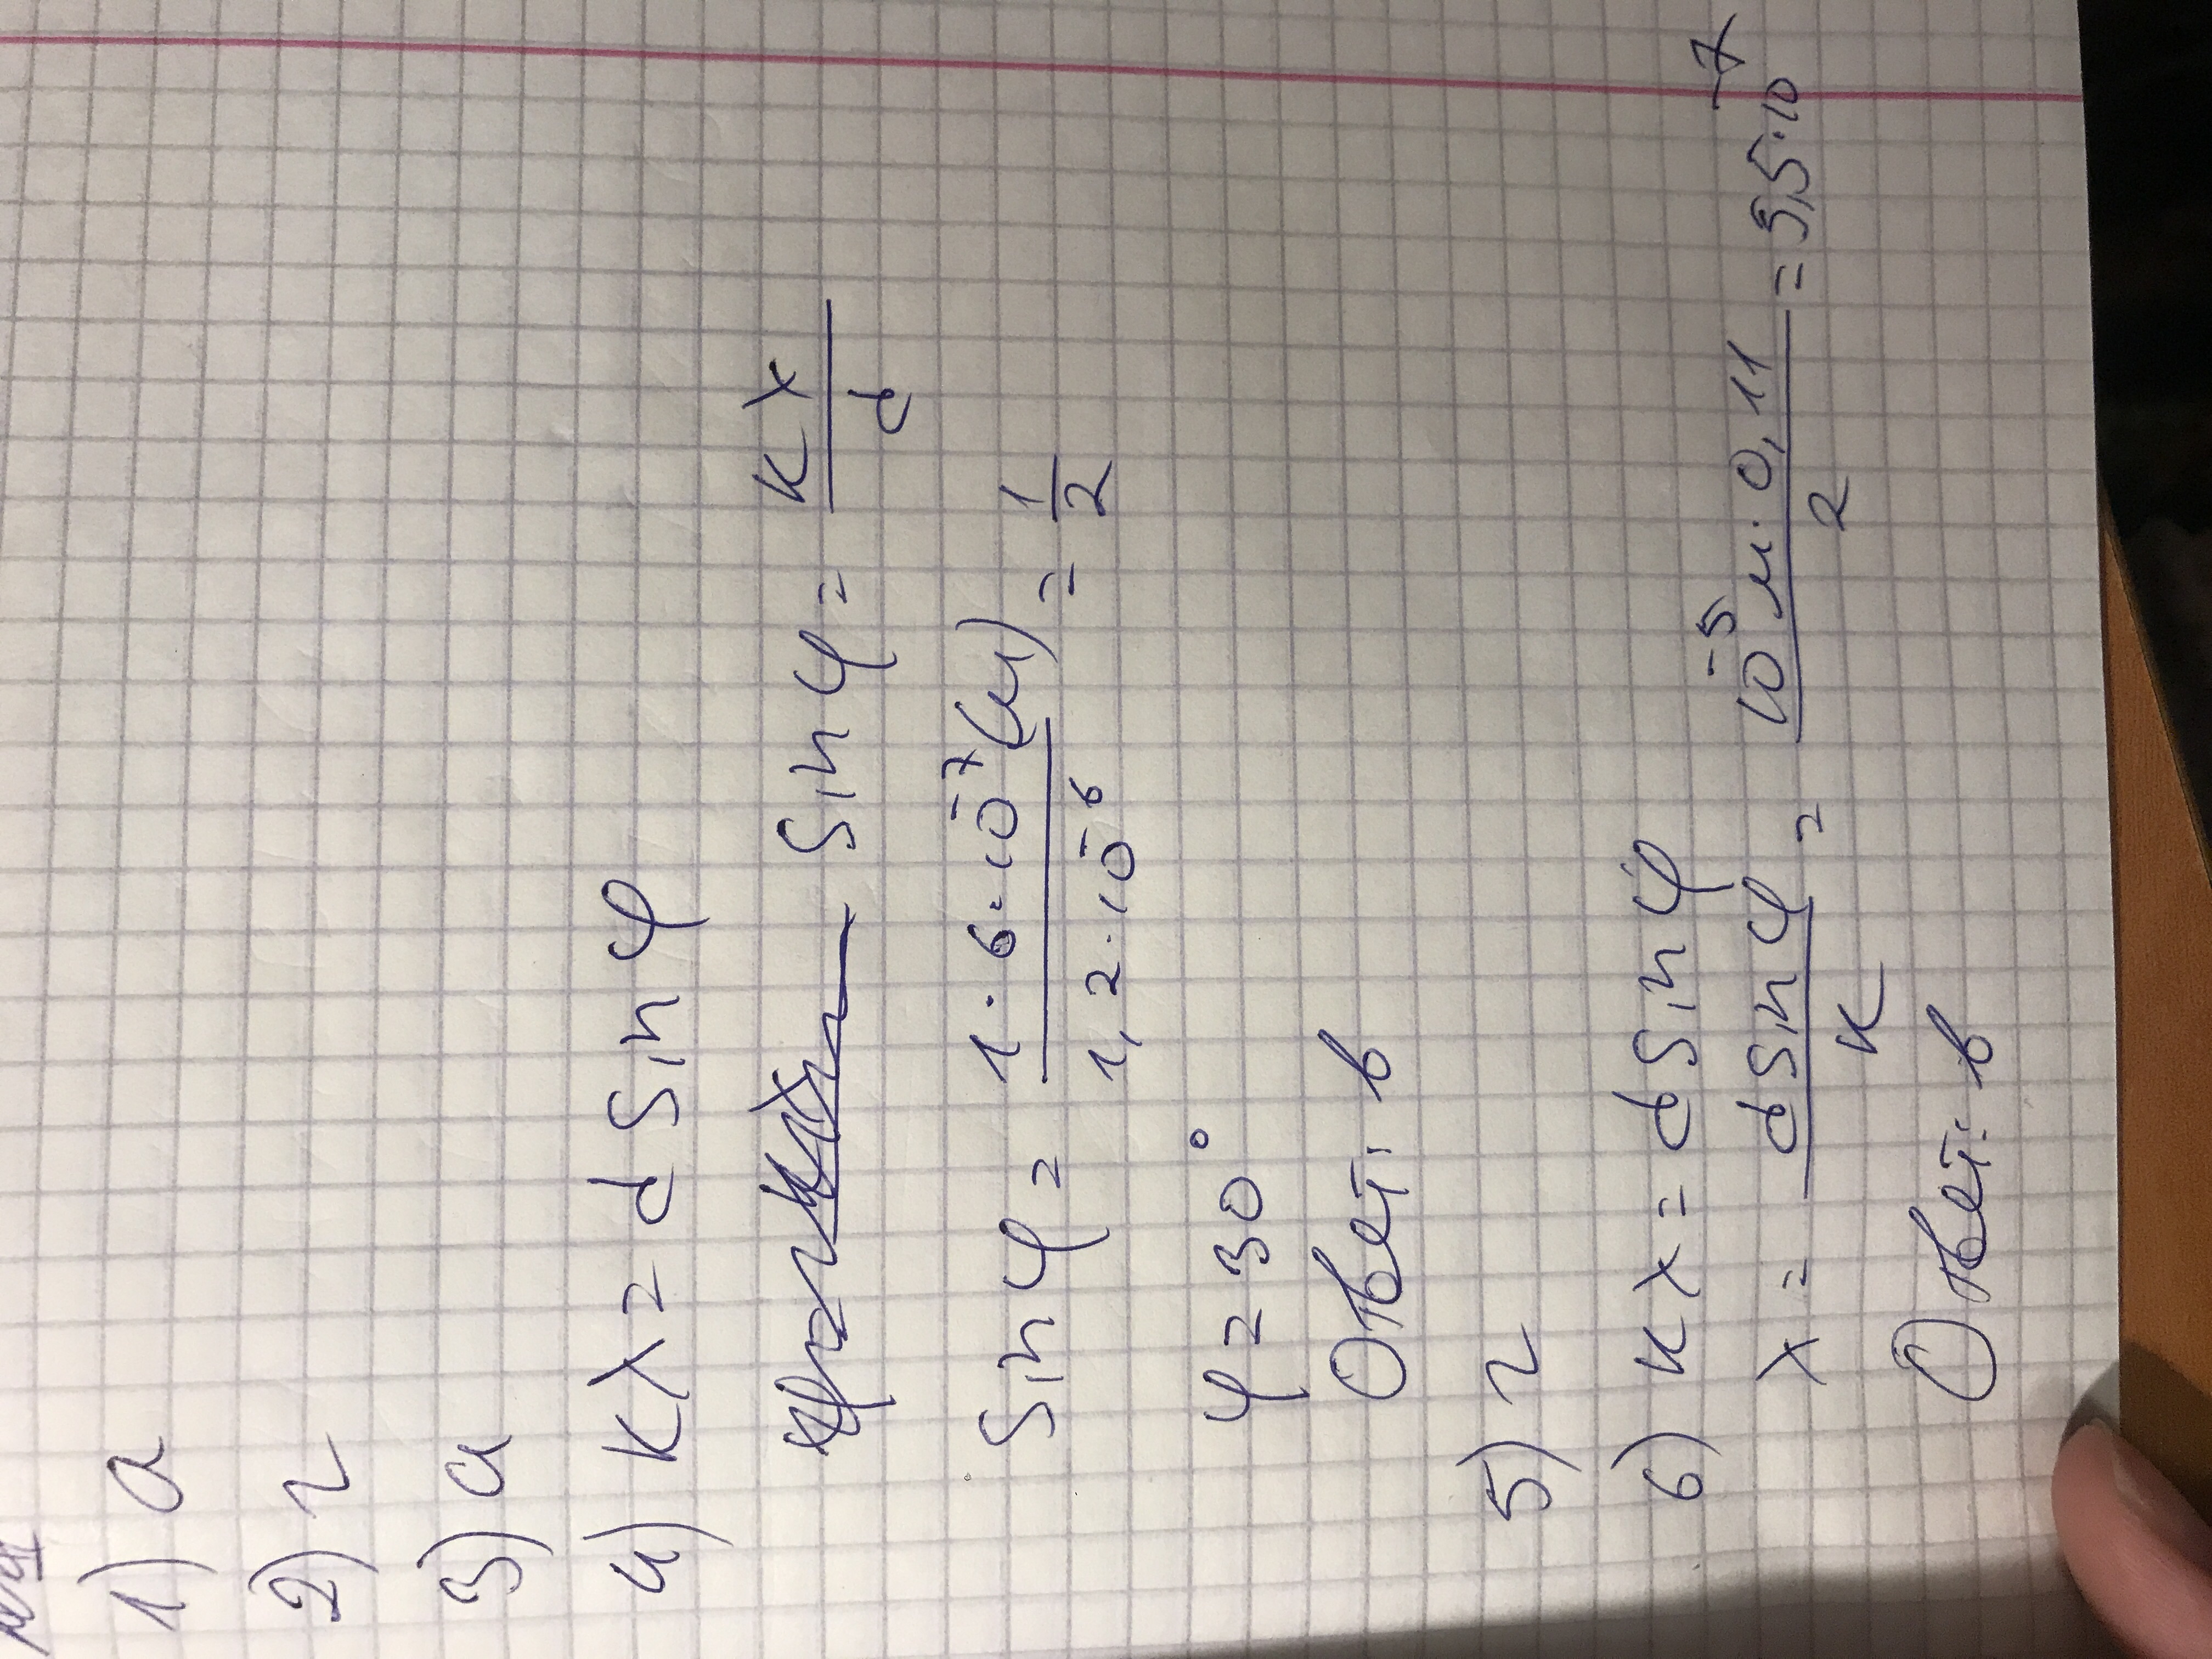 1) а
2) г
3) а
4) kλ = d sin φ
sin φ = kλ/d
sin φ = 1·6·10⁻⁷(м)/1,2·10⁻⁶ = 1/2
φ = 30°
Ответ: в
5) г
6) kλ = d sin φ
λ = d sin φ/k = 10⁻⁵м·0,11/2 = 5,5·10⁻⁷
Ответ: в